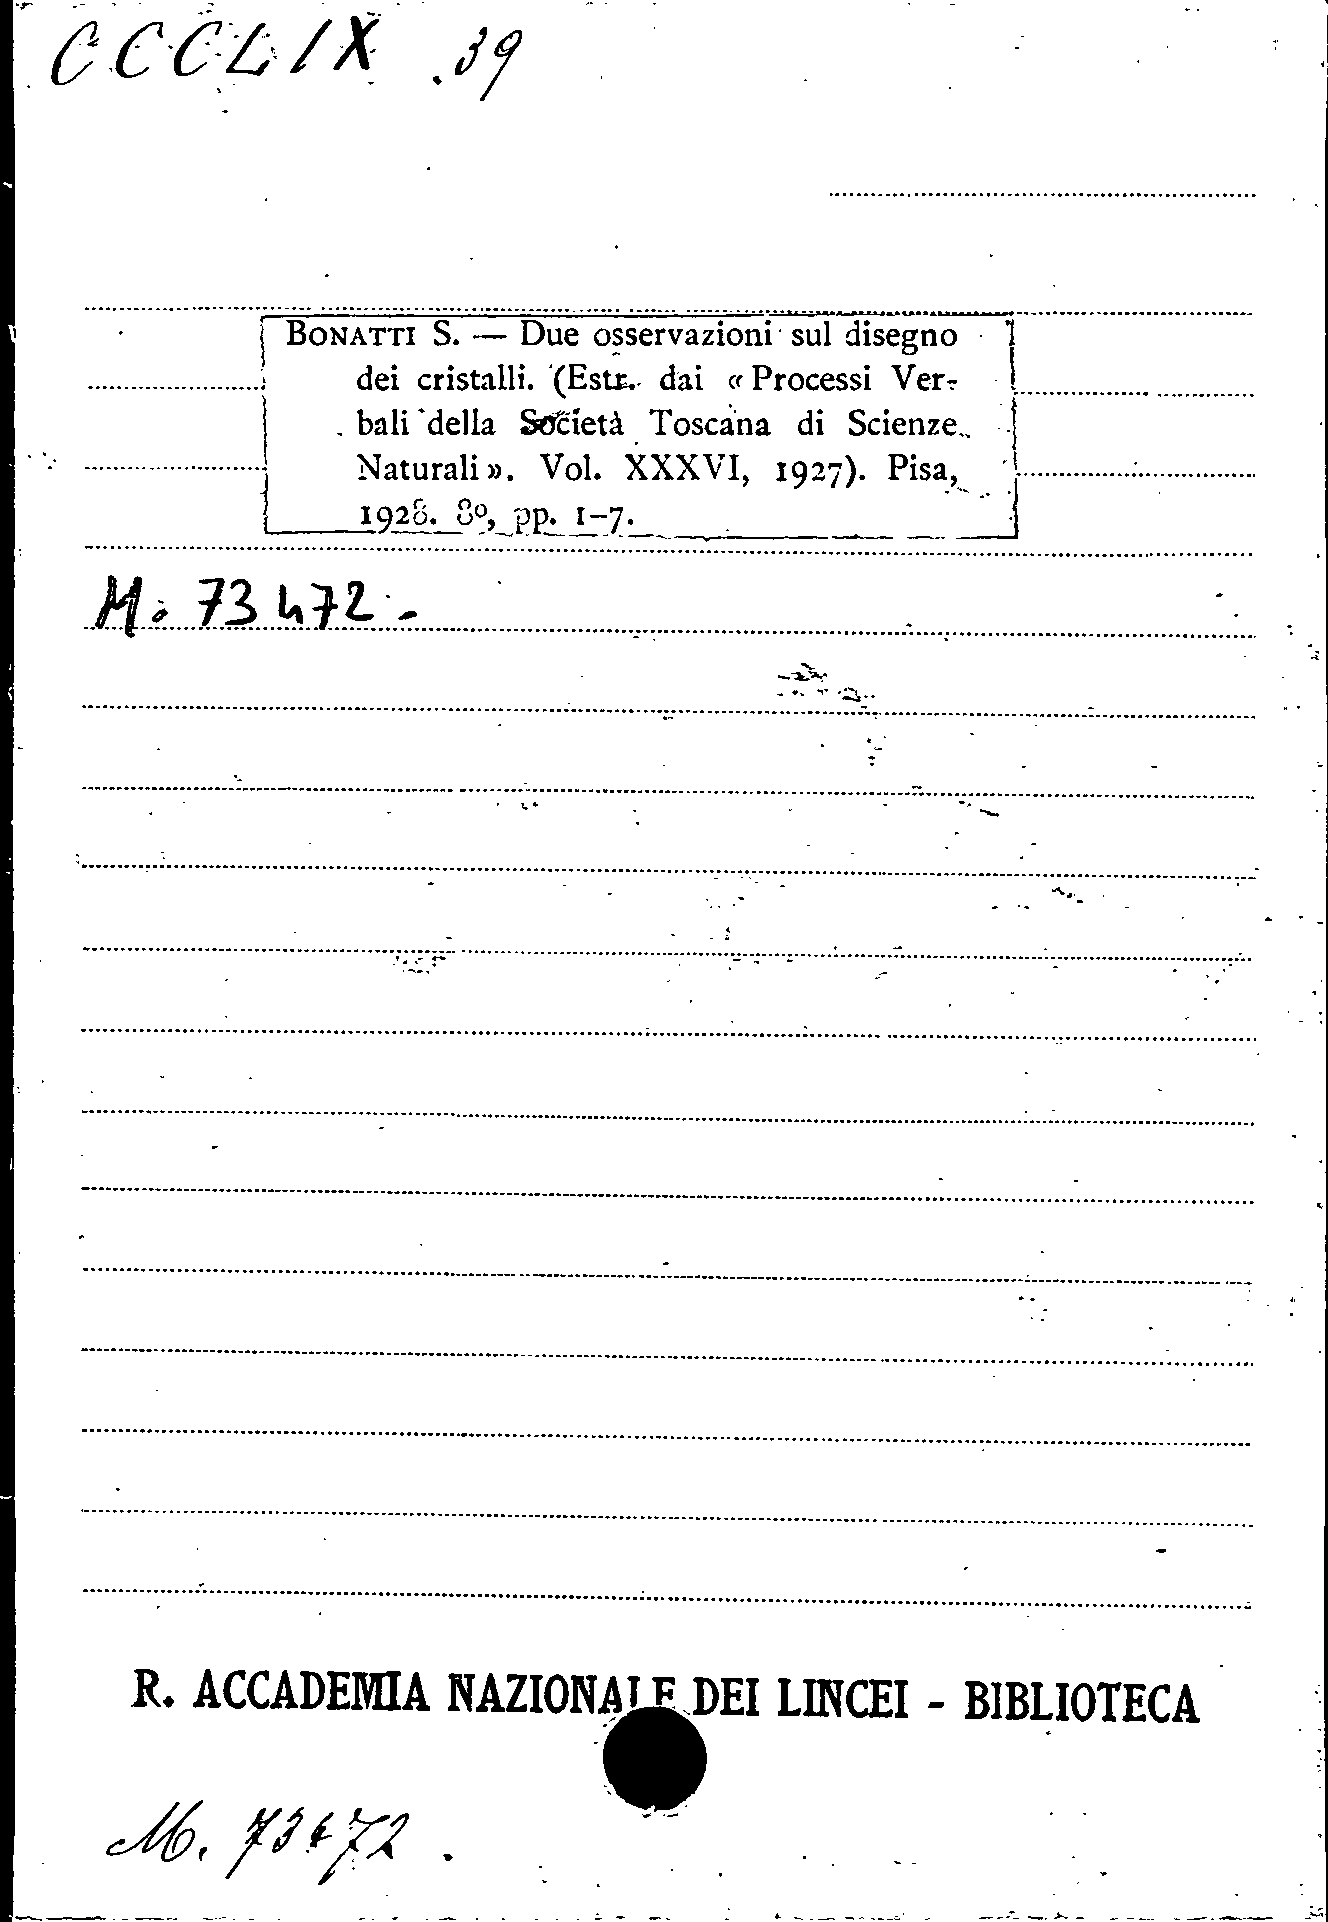 CCCLIX .39
BONATTI S. — Due osservazioni sul disegno
dei cristalli. (Estr. dai « Processi Ver-
bali della Società Toscana di Scienze
Naturali ». Vol. XXXVI, 1927). Pisa,
1928. 8º, pp. 1-7.
M. 73472.
R. ACCADEMIA NAZIONALE DEI LINCEI - BIBLIOTECA
M. 73472.